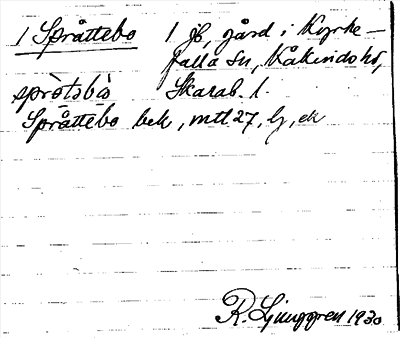 1 Språttebo 1 jb, gård i Kyrke-
falla sn, Kåkinds hd,
spròtsbò Skarab. l.
Språttebo bek, mtl 27, lj, ek
R. Ljunggren 1930